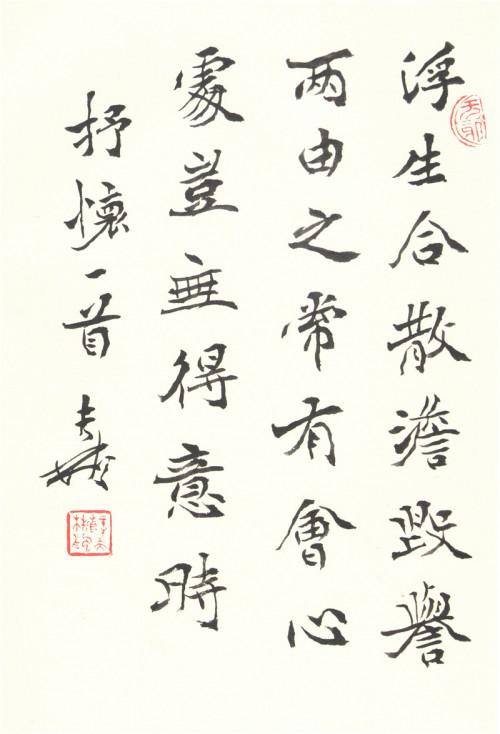 浮生合散澹毀譽
两由之常有會心
處豈無得意時
抒懷一首